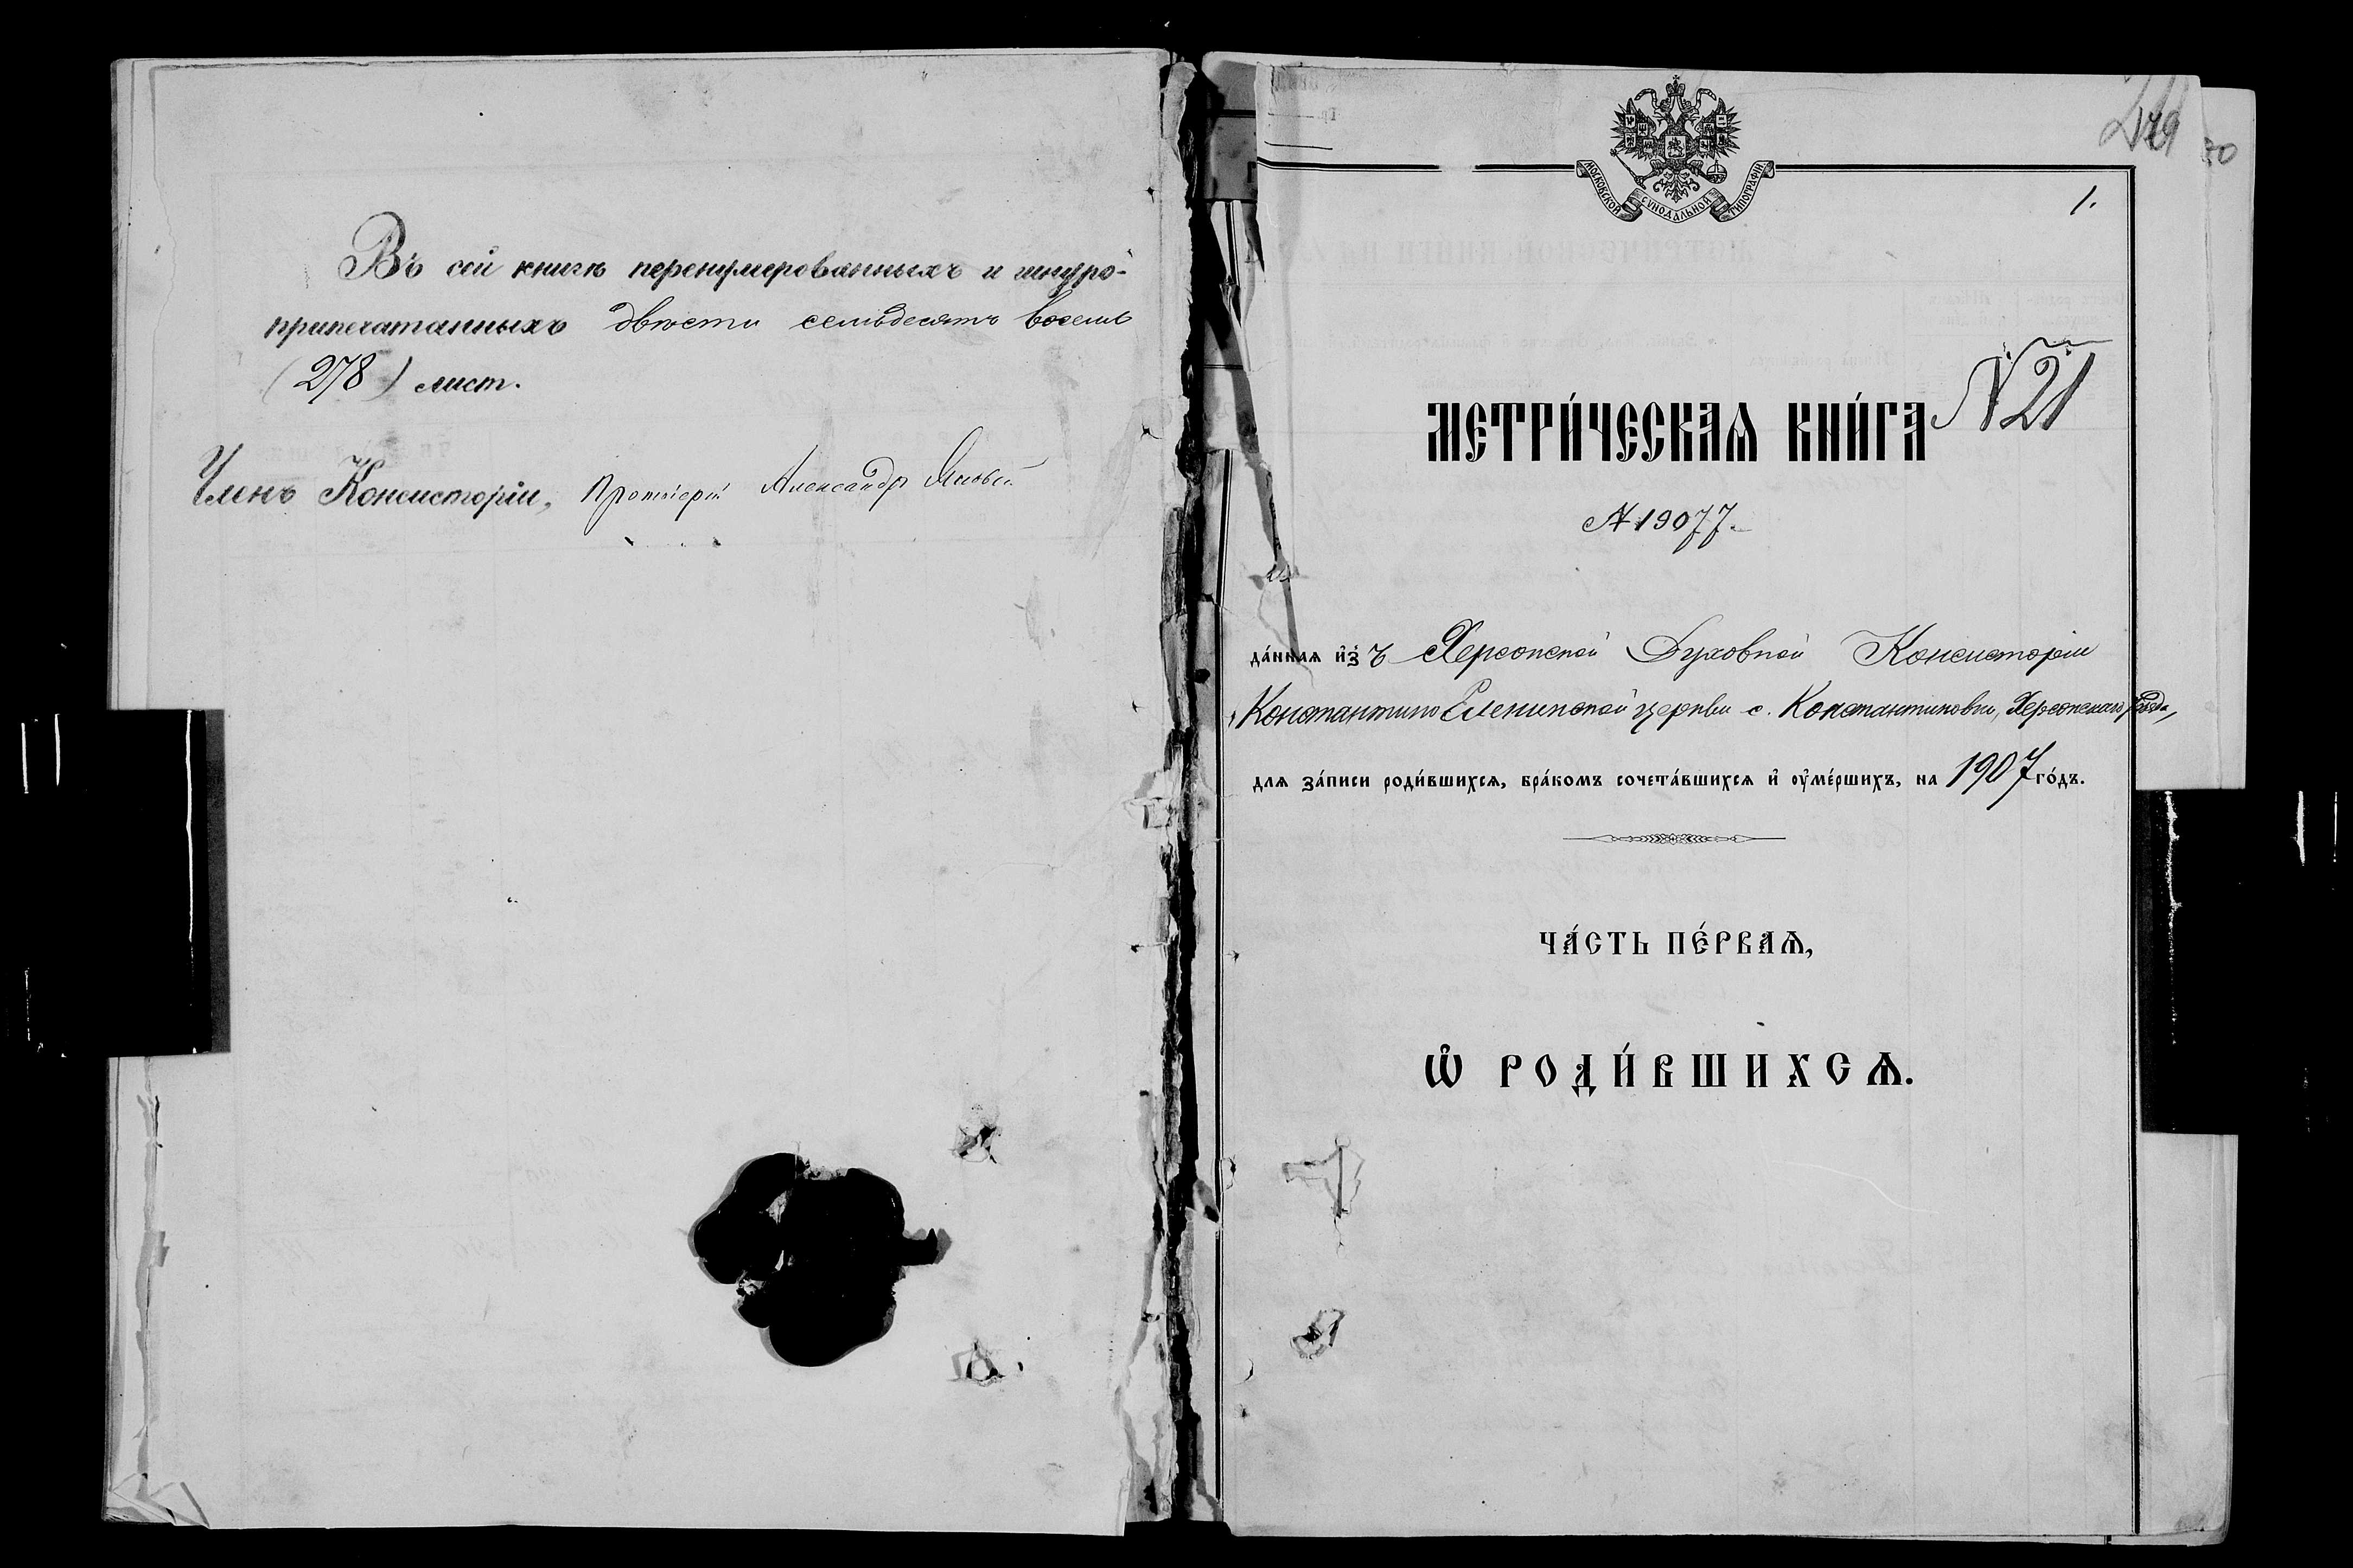 Въ сей книгѣ перенумерованныхъ и шнуро-
припечатанныхъ двѣсти семьдесятъ восемь
(278) лист.
Членъ Консисторіи, Протоіерей Александръ
МОСКОВСКОЙ СѴНОДАЛЬНОЙ ТИПОГРАФІИ
1.
МЕТРИ́ЧЕСКАѦ КНИ́ГА №21
№ 19077.
да́ннаѧ и҆з̾ъ Херсонской Духовной Консисторіи
Константино Еленинской церкви с. Константиновки, Херсонскаго уѣзда,
для за́писи роди́вшихсѧ, бра́комъ сочета́вшихсѧ и҆ оу҆ме́ршихъ, на 1907 го́дъ.
ЧА́СТЬ ПЕ́РВАѦ,
Ѡ҆ РОДИ́ВШИХСѦ.